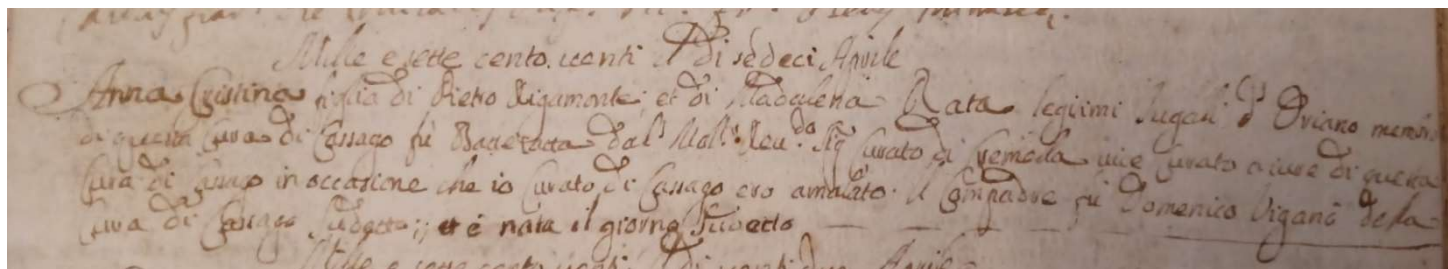 Mille e sette cento uenti il di sedeci Aprile
Anna Cristina figlia di Pietro Rigamonte; et di Madalena Rata legiimi Iugali d'Oriano membro
di questa Cura di Cassago fù Battezata dal Mol. Reu.do Sig Curato di Cremella uice Curato a cura di questa
Cura di Cassago in occasione che io Curato di Cassago ero amalato. Il Compadre fù Domenico Viganò della
Cura di Cassago Sudetto; et è nata il giorno sudetto
Mille e sette cento uenti di uenti due Aprile